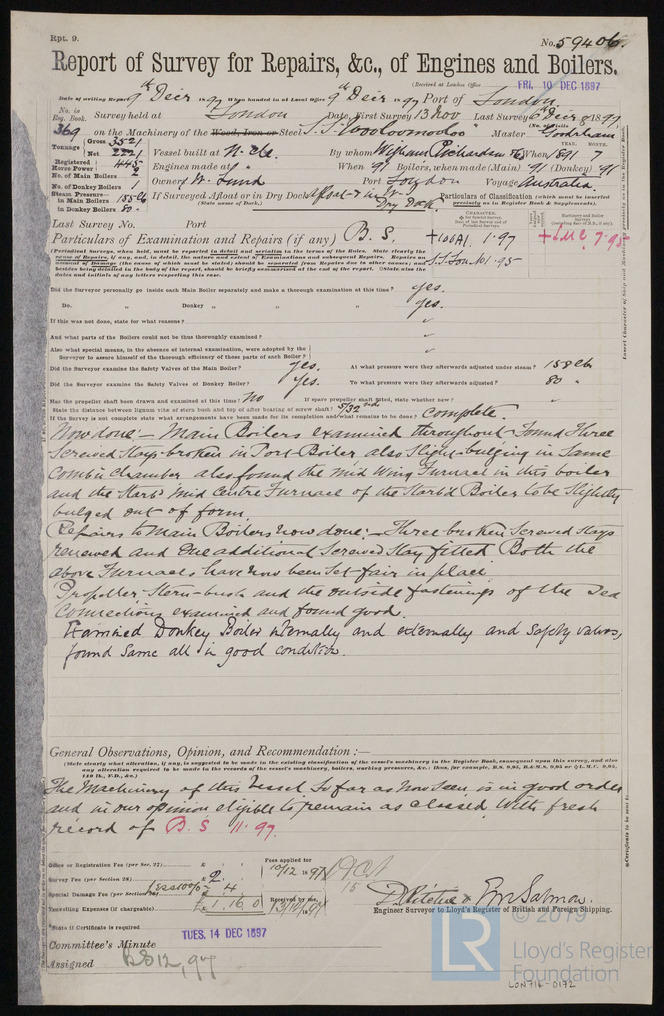 Rpt. 9.
No. 59406.
Report of Survey for Repairs, &c., of Engines and Boilers.
(Received at London Office FRI. 10 DEC 1897
Date of writing Report 9th Decr 1897 When handed in at Local Office 9th Decr 1897 Port of London
No. in Reg. Book. Survey held at London Date, First Survey 13 Nov Last Survey 6 Decr 1897
369 on the Machinery of the Wood, Iron or Steel S.S. Wooloomooloo Master
Tonnage Gross 3521 Net 2221 Vessel built at N. Cle. By whom Wigham Richardson & Co When 1891 7
Registered Horse Power 445 Engines made at " When 91 Boilers, when made (Main) 91 (Donkey) 91
No. of Main Boilers 2
No. of Donkey Boilers 1 Owners W. Lund Port London Voyage Australia.
Steam Pressure in Main Boilers 158 lb in Donkey Boiler 80 If Surveyed Afloat or in Dry Dock Afloat & in Dry Dock
(State name of Dock.)
Particulars of Classification (which must be inserted precisely as in Register Book & Supplements).
Last Survey No. Port
Particulars of Examination and Repairs (if any) B. S.
+100A1. 1.97
+LMC 7.95
S.S. Lon. No1.95
(Periodical Surveys, when held, must be reported in detail and seriatim in the terms of the Rules. State clearly the
cause of Repairs, if any, and, in detail, the nature and extent of Examinations and subsequent Repairs. Repairs on
account of Damage (the cause of which must be stated) should be separated from Repairs due to other causes; and
besides being detailed in the body of the report, should be briefly summarised at the end of the report. State also the
dates and initials of any letters respecting this case.
Did the Surveyor personally go inside each Main Boiler separately and make a thorough examination at this time? yes.
Do. " Donkey " " " " yes.
If this was not done, state for what reasons?
And what parts of the Boilers could not be thus thoroughly examined?
Also what special means, in the absence of internal examination, were adopted by the
Surveyor to assure himself of the thorough efficiency of those parts of each Boiler?
Did the Surveyor examine the Safety Valves of the Main Boiler? yes. At what pressure were they afterwards adjusted under steam? 158 lb
Did the Surveyor examine the Safety Valves of Donkey Boiler? yes. To what pressure were they afterwards adjusted? 80 "
Has the propeller shaft been drawn and examined at this time? No If spare propeller shaft fitted, state whether new? "
State the distance between lignum vitæ of stern bush and top of after bearing of screw shaft? 5/32nds
If the Survey is not complete state what arrangements have been made for its completion and what remains to be done? Complete.
Now done - Main Boilers examined throughout. Found Three
Screwed Stays broken in Port Boiler also Slight bulging in same
Combn Chamber also found the Mid Wing Furnace in this boiler
and the Starbd Mid Centre Furnace of the Starbd Boiler to be Slightly
bulged out of form
Repairs to Main Boilers now done:- Three broken Screwed Stays
renewed and One additional Screwed Stay fitted Both the
above Furnaces have now been set fair in place.
Propeller Stern-bush and the outside fastenings of the Sea
Connections examined and found good.
Examined Donkey Boiler internally and externally and safety valves,
found same all in good condition.
General Observations, Opinion, and Recommendation:—
(State clearly what alteration, if any, is suggested to be made in the existing classification of the vessel's machinery in the Register Book, consequent upon this survey, and also
any alteration required to be made in the records of the vessel's machinery, boilers, working pressures, &c.: thus, for example, B.S. 9,95, B.&M.S. 9,95 or L.M.C. 9,95,
140 lb., F.D., &c.)
The Machinery of this Vessel so far as now seen is in good order
and in our opinion eligible to remain as classed with fresh
record of B. S 11.97.
Office or Registration Fee (per Sec. 27) £
Survey Fee (per Section 28) £ 2.
Less 10% 4
Special Damage Fee (per Section 28) £
£ 1.16.0
Travelling Expenses (if chargeable)
Fees applied for
10/12 1897
Received by me,
13/12/1897
Engineer Surveyor to Lloyd's Register of British and Foreign Shipping.
State if Certificate is required
TUES. 14 DEC 1897
Committee's Minute
Assigned BS 12,97
© 2019
LR
Lloyd's Register
Foundation
LON716-0172